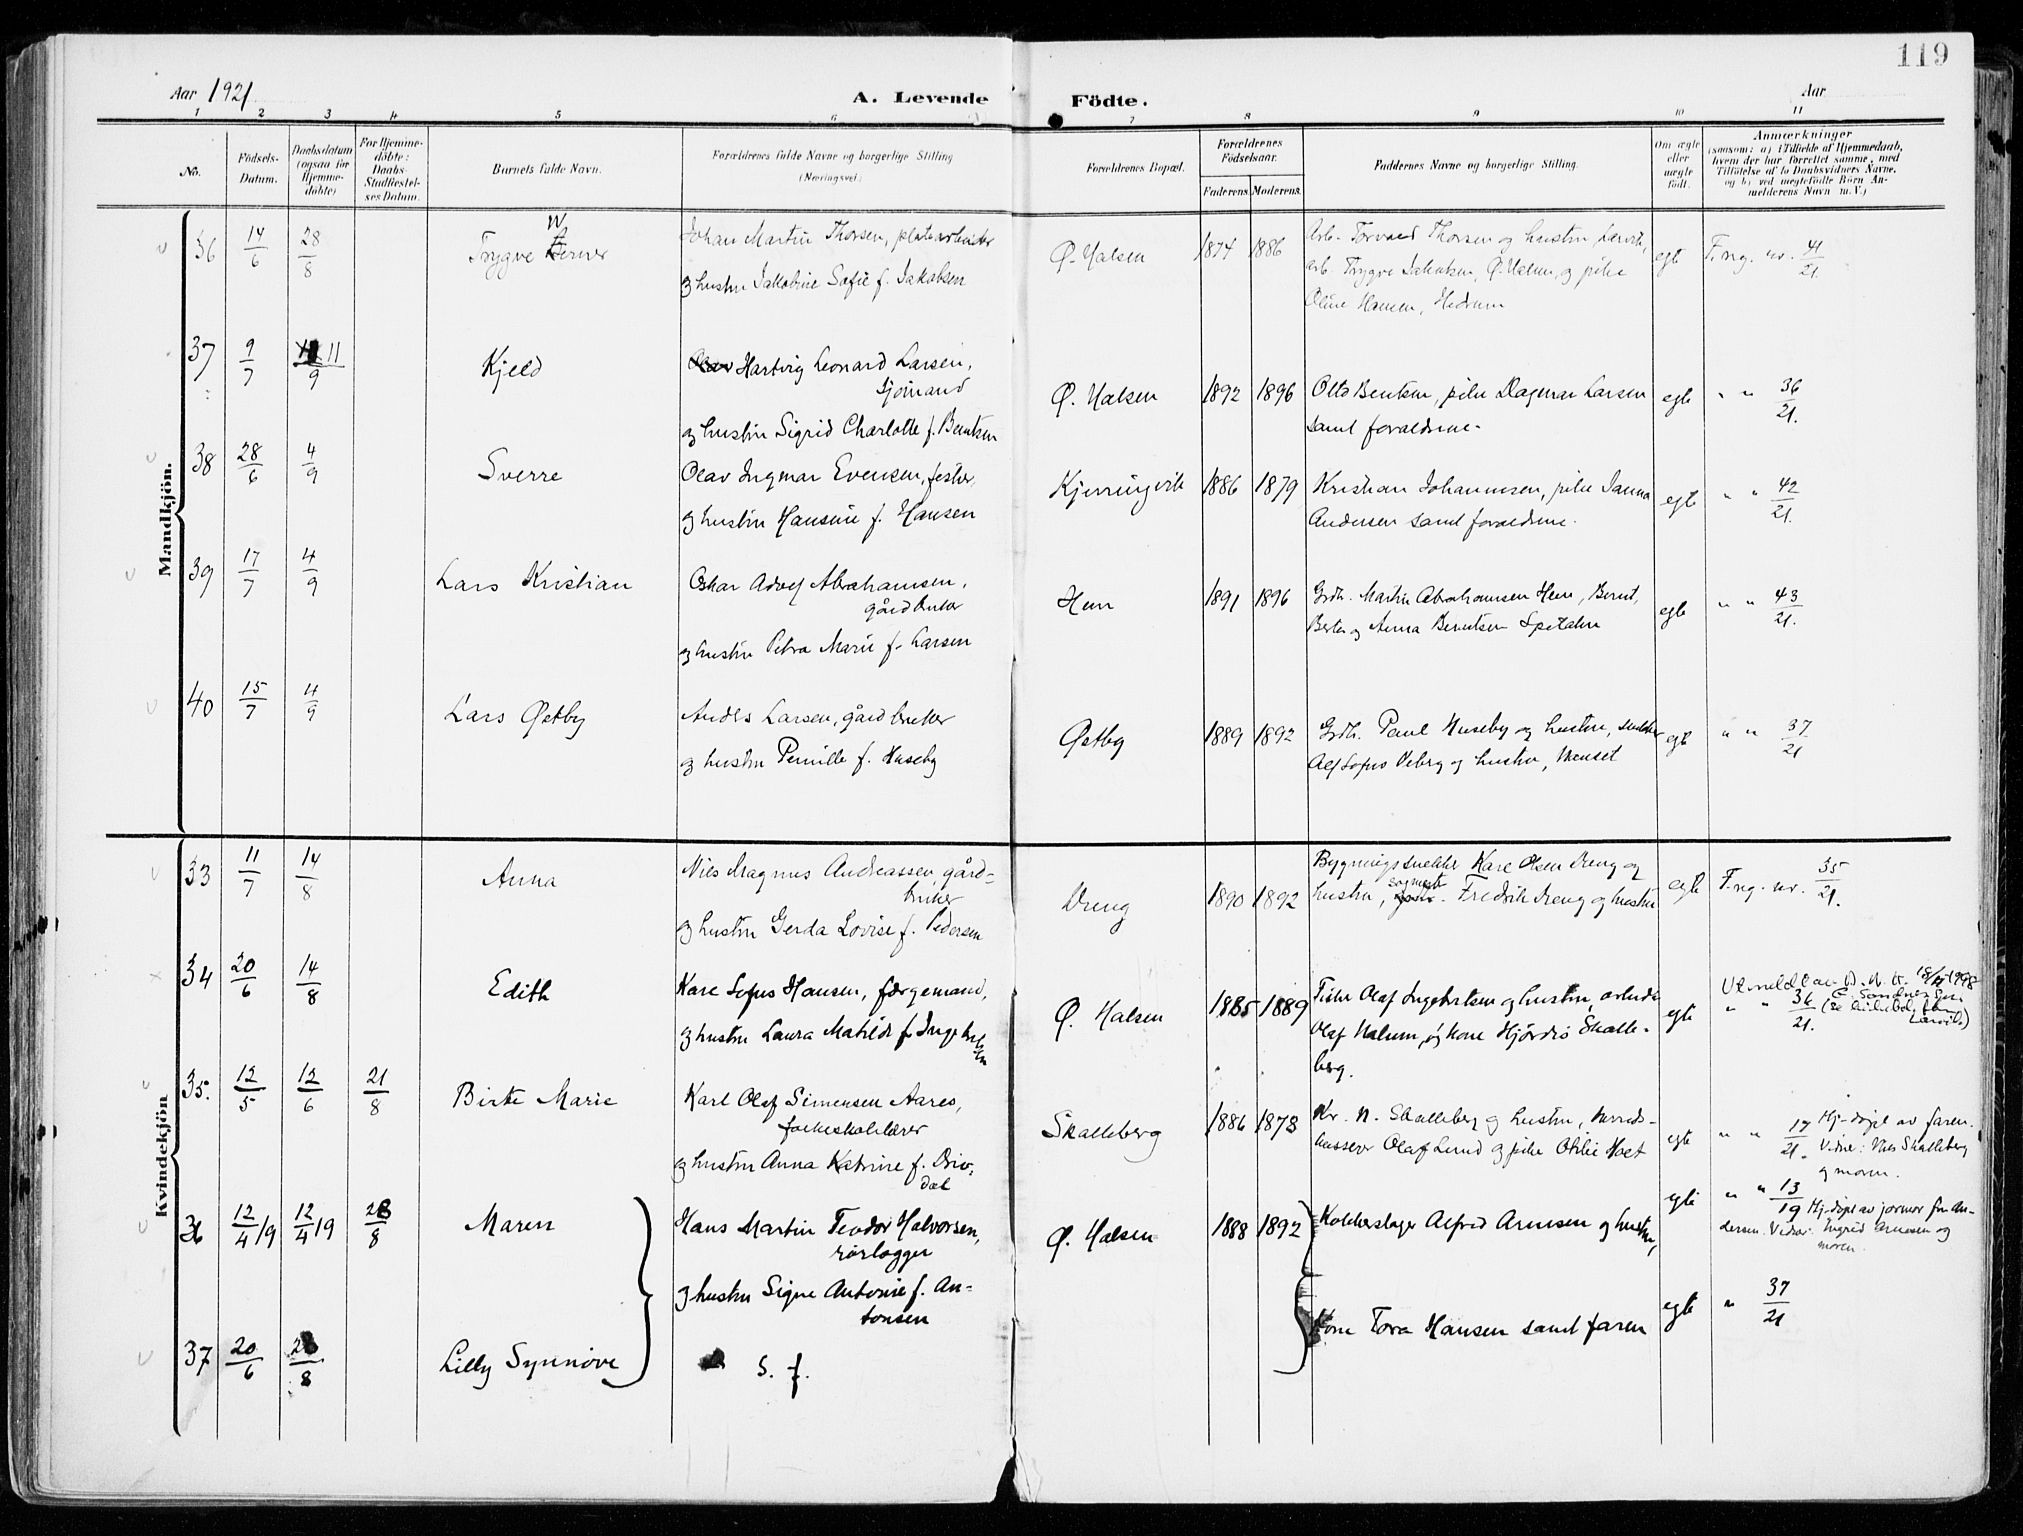 119
Aar 1921
A. Levende Födte.
Aar
1 2 3 4 5 6 7 8 9 10 11
No.
Födsels-Datum.
Daabsdatum (ogsaa for Hjemmedöbte)
For Hjemmedöbte: Daabs-Stadfæstelses Datum.
Barnets fulde Navn.
Forældrenes fulde Navne og borgerlige Stilling (Næringsvei.)
Forældrenes Bopæl.
Forældrenes Födselsaar.
Faderens. Moderens.
Faddernes Navne og borgerlige Stilling.
Om ægte eller uægte födt.
Anmærkninger
(saasom: a) i Tilfælde af Hjemmedaab,
hvem der har forrettet samme, med
Tilföielse af to Daabsvidners Navne.
og b) ved uægtefödte Börn An-
melderens Navn m. V.)
Mandkjön.
36 14/6 28/8 Trygve Werner
Johan Martin Thorsen, platearbeider
og hustru Jakobine Sofie f. Jakobsen
Ø. Halsen 1874 1886
Arb. Torvald Thorsen og hustru, Larvik,
arb. Trygve Jakobsen, Ø. Halsen, og pike
Oline Hansen, Hedrum
egte F.ng. nr. 41/21
37 9/7 11/9 Kjeld
Hartvig Leonard Larsen,
sjømand
og hustru Sigrid Charlotte f. Bentsen
Ø. Halsen 1892 1896
Otto Bentsen, pike Dagmar Larsen
samt forældrene.
egte " " 36/21.
38 28/6 4/9 Sverre
Olav Ingmar Evensen, fisker,
og hustru Hansine f. Hansen
Kjerringvik 1886 1879
Kristian Johannesen, pike Janna
Andersen samt forældrene.
egte " " 42/21.
39 17/7 4/9 Lars Kristian
Oskar Adolf Abrahamsen,
gårdbruker
og hustru Petra Marie f. Larsen
Hem 1891 1896
Grdb. Martin Abrahamsen Hem, Bernt,
Berta og Anna Berntsen
egte " " 43/21.
40 15/7 4/9 Lars Østby
Anders Larsen, gårdbruker
og hustru Pernille f. Huseby
Østby 1889 1892
Grdb. Paul Huseby og hustru, snekker
Alf Sofus Veberg og hustru,
egte " " 37/21
Kvindekjön
33 11/7 14/8 Anna
Nils Magnus Andreassen, gård-
bruker
og hustru Gerda Lovise f. Pedersen
Dreng 1890 1892
Bygningssnekker Kare Olsen Dreng og
hustru, Fredrik Dreng og hustru
egte F.ng. nr. 35/21.
34 20/6 14/8 Edith
Kare Sofus Hansen, færgemand,
og hustru Laura Matilde f. Ingebrtsen
Ø. Halsen 1885 1889
Fisker Olaf Ingebrtsen og hustru, arbeider
Olaf Halum, og kone Hjørdis Skalle-
berg.
egte " " 34/21.
35. 12/5 12/6 21/8 Birte Marie
Karl Olaf Simensen Aares,
folkeskolelærer
og hustru Anna Katrine f. Driv-
dal
Skalleberg 1886 1878
Kr. N. Skalleberg og hustru,
Olaf Lund og pike Otilie Hoet
egte " " 17/21. Hj-døpt av faren.
Vidner: Nils Skalleberg
og moren.
36 12/4 19 12/4 19 28/8 Maren
Hans Martin Teodor Halvorsen,
rørlægger
og hustru Signe Antonie f. An-
tonsen
Ø. Halsen 1888 1892
Kobberslager Alfred Arnesen og hustru,
egte " " 13/19 Hj-døpt av jormor fru An-
dersen. Vidner: Ingrid Arnesen og
moren.
37 20/6 28/8 Lilly Synnøve
S. f.
Kone Tora Hansen samt faren
egte " 37/21